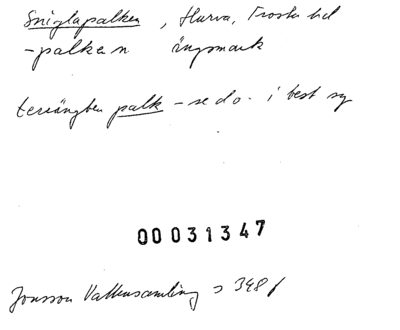 Sniglapalken, Hurva, Frosta hd
-palken ängsmark
terrängben palk - se do. i best sg
00031347
Jonsson Vattensamling s 348 f